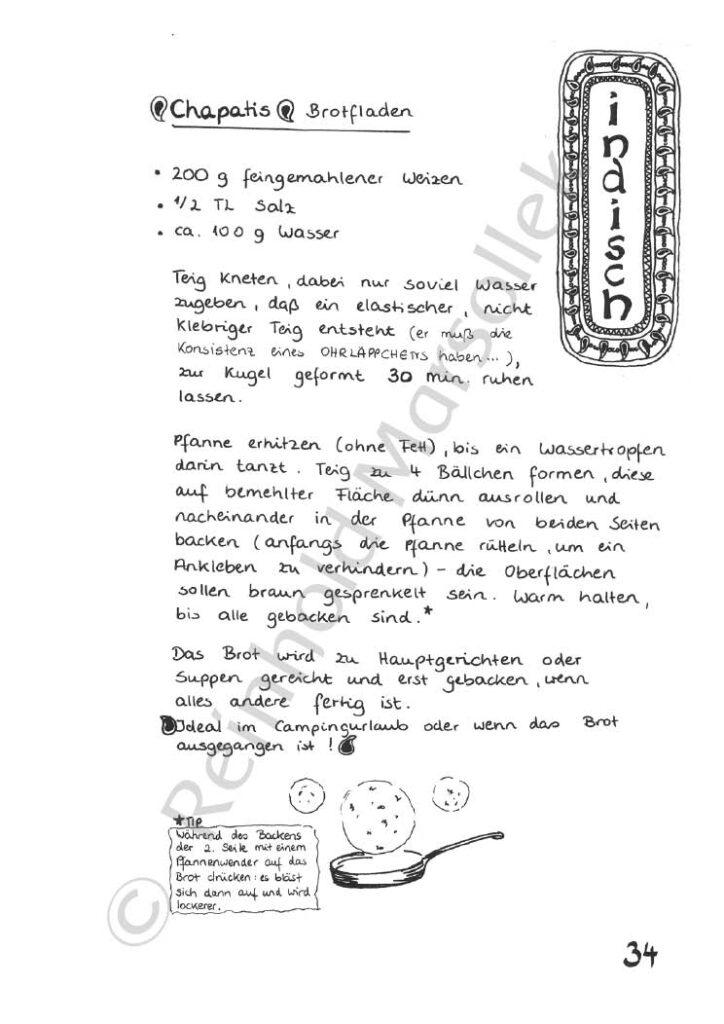 Chapatis Brotfladen
indisch
• 200 g feingemahlener Weizen
• 1/2 TL Salz
• ca. 100 g Wasser
Teig kneten, dabei nur soviel Wasser
zugeben, daß ein elastischer, nicht
klebriger Teig entsteht (er muß die
Konsistenz eines OHRLÄPPCHENS haben...),
zur Kugel geformt 30 min. ruhen
lassen.
Pfanne erhitzen (ohne Fett), bis ein Wassertropfen
darin tanzt. Teig zu 4 Bällchen formen, diese
auf bemehlter Fläche dünn ausrollen und
nacheinander in der Pfanne von beiden Seiten
backen (anfangs die Pfanne rütteln, um ein
Ankleben zu verhindern) - die Oberflächen
sollen braun gesprenkelt sein. Warm halten,
bis alle gebacken sind.*
Das Brot wird zu Hauptgerichten oder
Suppen gereicht und erst gebacken, wenn
alles andere fertig ist.
Ideal im Campingurlaub oder wenn das Brot
ausgegangen ist!
*TIP
Während des Backens
der 2. Seite mit einem
Pfannenwender auf das
Brot drücken: es bläst
sich dann auf und wird
lockerer.
34
© Reinhold Marsollek